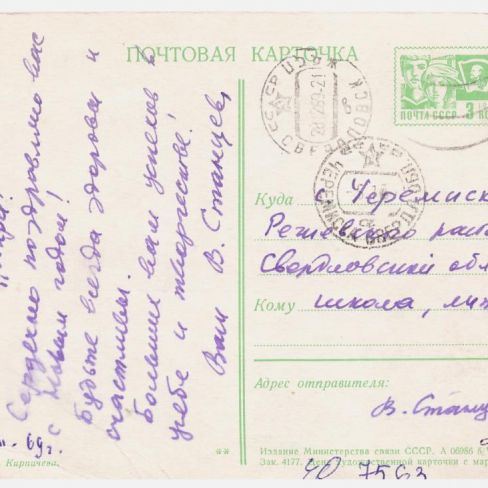 ПОЧТОВАЯ КАРТОЧКА
ПОЧТА СССР 3
Сердечно поздравляю вас
с Новым годом!
Будьте всегда здоровы и
счастливы!
Больших вам успехов в
учебе и творчестве!
Ваш В. Станцев
69г.
Кирпичева.
Куда Черемисс
Режевского рай
Свердловской обл
Кому школа,
Адрес отправителя:
В. Станц
** Издание Министерства связи СССР. А 06986
Зак. 4177. художественной карточки с мар
40 7563